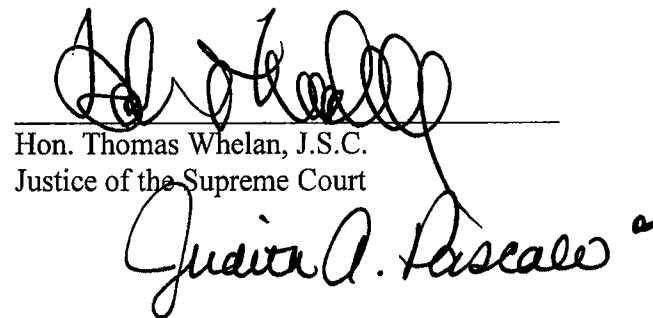 Hon. Thomas Whelan, J.S.C.
Justice of the Supreme Court
Judith A. Pascale